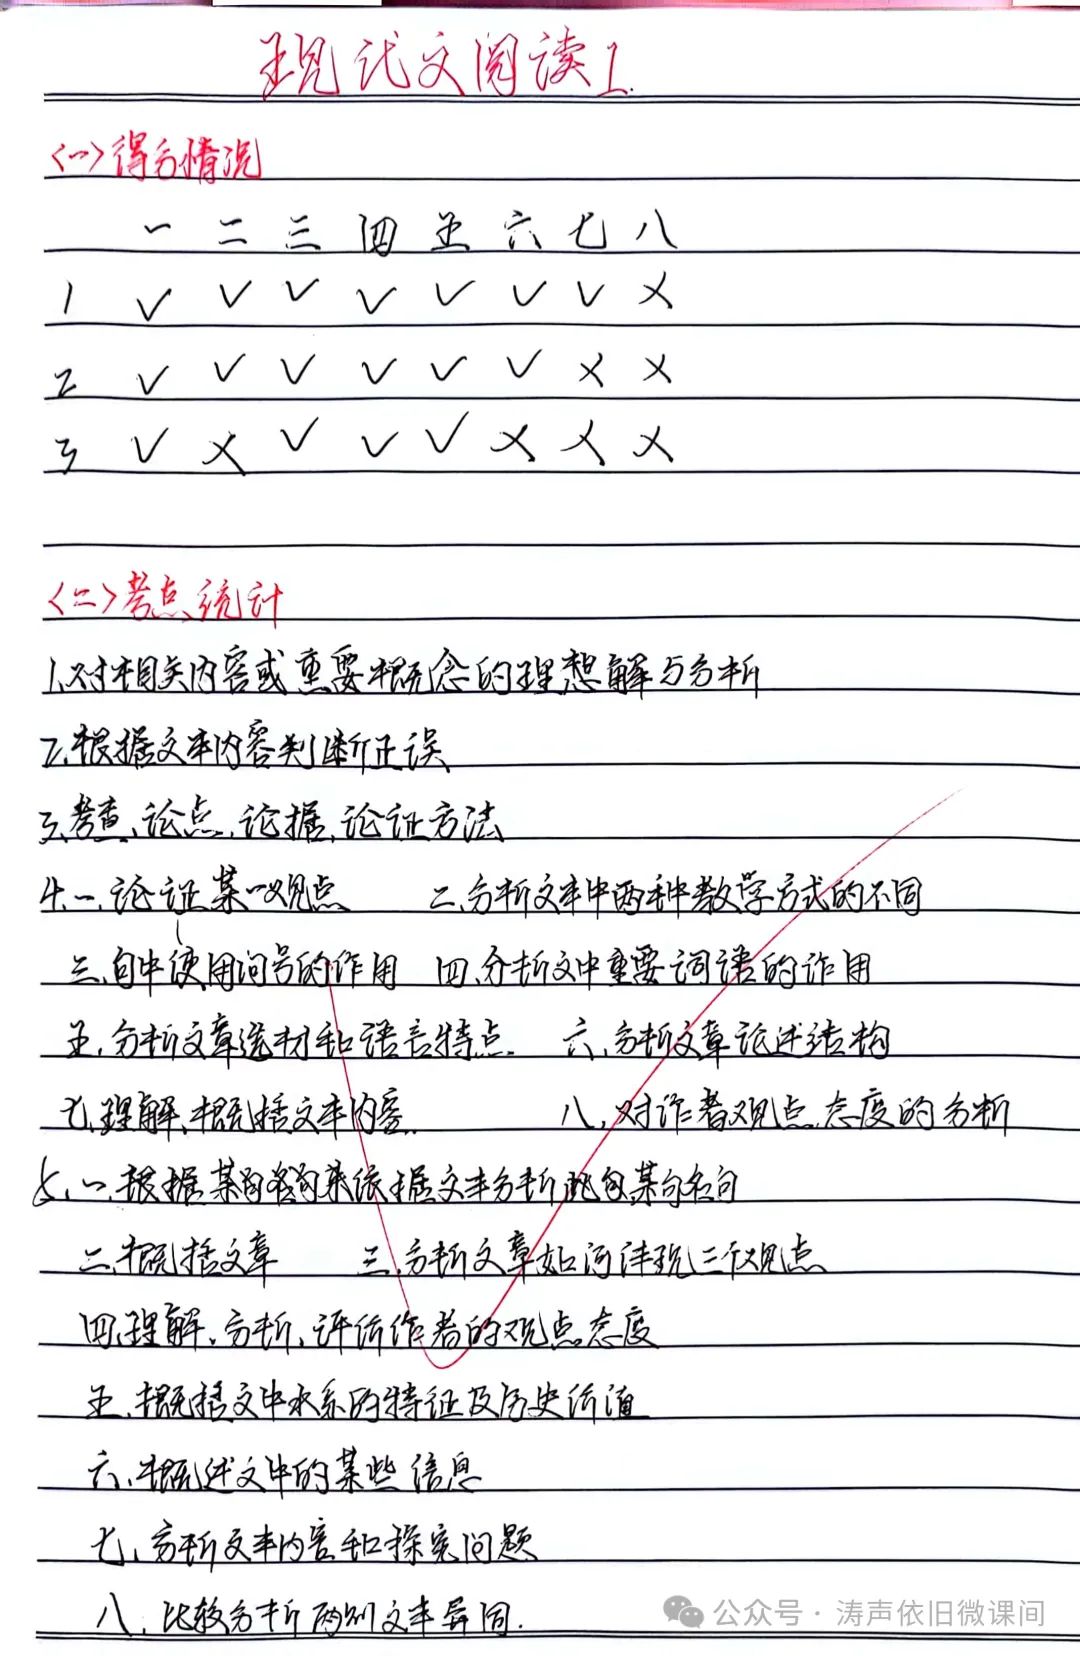 现代文阅读1.
<一>得分情况
一 二 三 四 五 六 七 八
1 ✓ ✓ ✓ ✓ ✓ ✓ ✓ ×
2 ✓ ✓ ✓ ✓ ✓ ✓ × ×
3 ✓ × ✓ ✓ ✓ × × ×
<二>考点统计
1.对相关内容或重要概念的理想解与分析
2.根据文本内容判断正误
3.考查、论点、论据、论证方法
4.一.论证某一观点 二.分析文本中两种教学方式的不同
三.句中使用问号的作用 四.分析文中重要词语的作用
五.分析文章选材和语言特点. 六.分析文章论述结构
七.理解、概括文本内容. 八.对作者观点、态度的分析
5.一.根据某句 来依据文本分析此句某句名句
二.概括文章 三.分析文章如何体现三个观点
四.理解、分析、评价作者的观点态度
五.概括文中水系的特征及历史价值
六、概述文中的某些信息
七、分析文本内容和探究问题
八、比较分析两则文本异同.
公众号·涛声依旧微课间